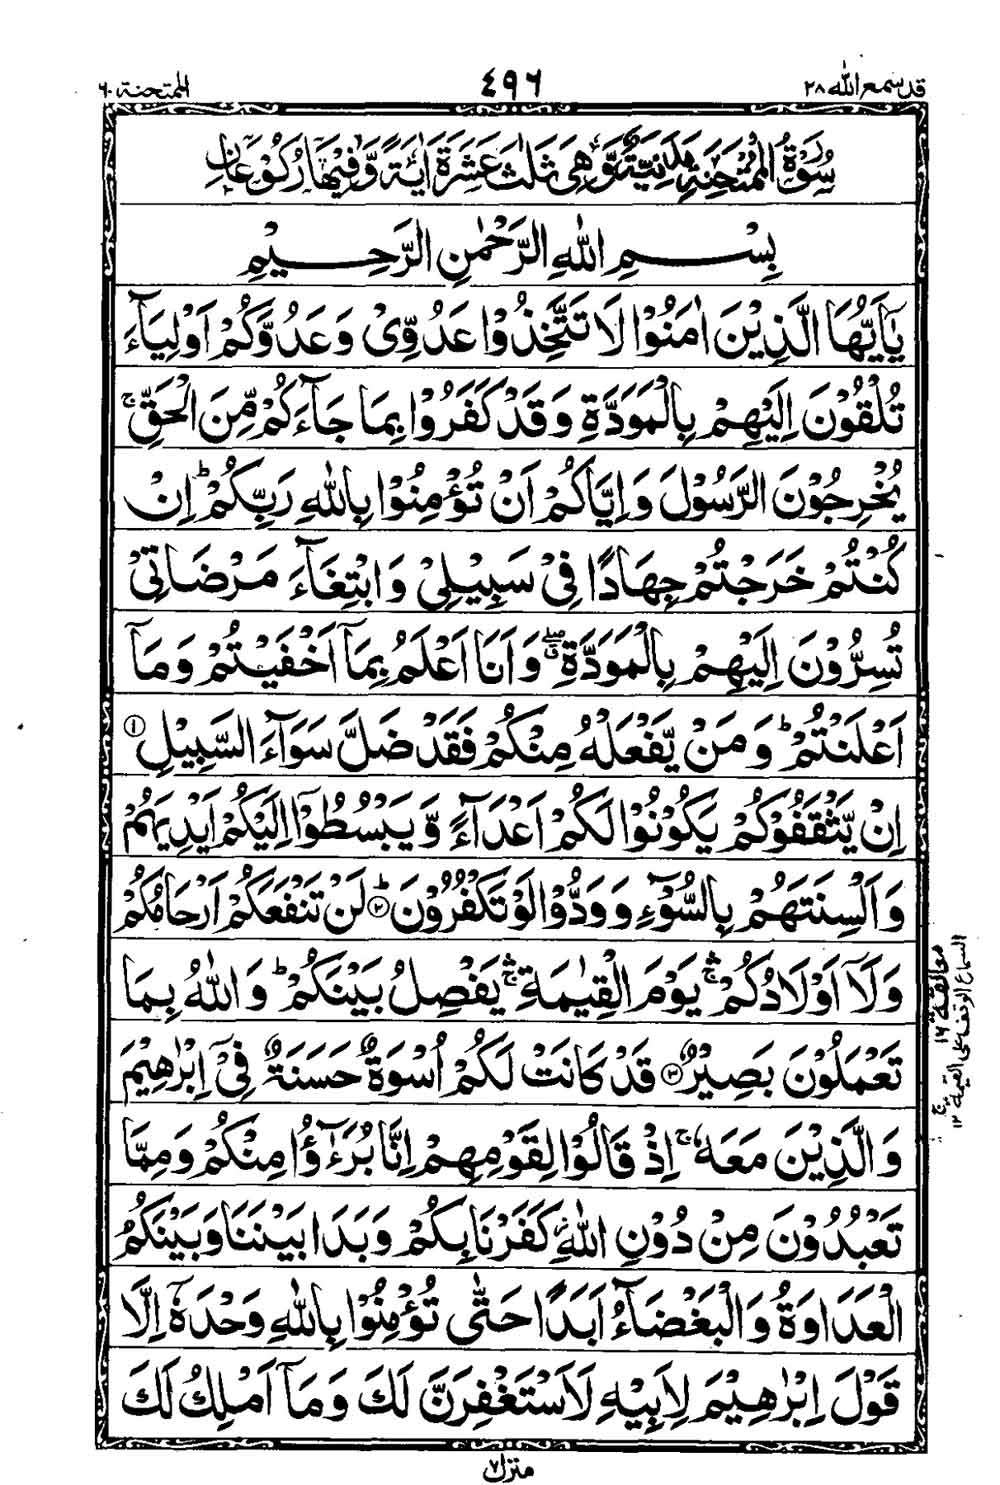 قد سمع الله ٢٨
٤٩٦
الممتحنة ٦٠
سُوْرَةُ الْمُمْتَحِنَةِ مَدَنِيَّةٌ وَّهِىَ ثَلٰثَ عَشَرَةَ اٰيَةً وَّفِيْهَا رُكُوْعَانِ
بِسْمِ اللّٰهِ الرَّحْمٰنِ الرَّحِيْمِ
يٰۤاَيُّهَا الَّذِيْنَ اٰمَنُوْا لَا تَتَّخِذُوْا عَدُوِّىْ وَعَدُوَّكُمْ اَوْلِيَآءَ
تُلْقُوْنَ اِلَيْهِمْ بِالْمَوَدَّةِ وَقَدْ كَفَرُوْا بِمَا جَآءَكُمْ مِّنَ الْحَقِّ ۚ
يُخْرِجُوْنَ الرَّسُوْلَ وَاِيَّاكُمْ اَنْ تُؤْمِنُوْا بِاللّٰهِ رَبِّكُمْ ؕ اِنْ
كُنْتُمْ خَرَجْتُمْ جِهَادًا فِىْ سَبِيْلِىْ وَابْتِغَآءَ مَرْضَاتِىْ
تُسِرُّوْنَ اِلَيْهِمْ بِالْمَوَدَّةِ ۖ وَاَنَا اَعْلَمُ بِمَاۤ اَخْفَيْتُمْ وَمَاۤ
اَعْلَنْتُمْ ؕ وَمَنْ يَّفْعَلْهُ مِنْكُمْ فَقَدْ ضَلَّ سَوَآءَ السَّبِيْلِ ①
اِنْ يَّثْقَفُوْكُمْ يَكُوْنُوْا لَكُمْ اَعْدَآءً وَّيَبْسُطُوْۤا اِلَيْكُمْ اَيْدِيَهُمْ
وَاَلْسِنَتَهُمْ بِالسُّوْٓءِ وَوَدُّوْا لَوْ تَكْفُرُوْنَ ؕ② لَنْ تَنْفَعَكُمْ اَرْحَامُكُمْ
وَلَاۤ اَوْلَادُكُمْ ۛۚ يَوْمَ الْقِيٰمَةِ ۛۚ يَفْصِلُ بَيْنَكُمْ ؕ وَاللّٰهُ بِمَا
تَعْمَلُوْنَ بَصِيْرٌ ③ قَدْ كَانَتْ لَكُمْ اُسْوَةٌ حَسَنَةٌ فِىْۤ اِبْرٰهِيْمَ
وَالَّذِيْنَ مَعَهٗ ۚ اِذْ قَالُوْا لِقَوْمِهِمْ اِنَّا بُرَءٰٓؤُا مِنْكُمْ وَمِمَّا
تَعْبُدُوْنَ مِنْ دُوْنِ اللّٰهِ كَفَرْنَا بِكُمْ وَبَدَا بَيْنَنَا وَبَيْنَكُمُ
الْعَدَاوَةُ وَالْبَغْضَآءُ اَبَدًا حَتّٰى تُؤْمِنُوْا بِاللّٰهِ وَحْدَهٗۤ اِلَّا
قَوْلَ اِبْرٰهِيْمَ لِاَبِيْهِ لَاَسْتَغْفِرَنَّ لَكَ وَمَاۤ اَمْلِكُ لَكَ
معانقة ١٦
منزل ٧